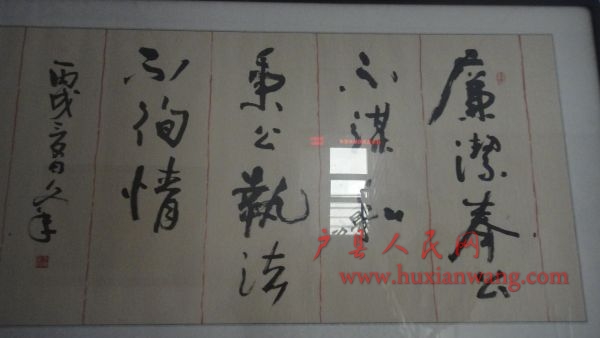 廉潔奉公
不謀私
秉公執法
不徇情
丙戌
户县人民网
www.huxianwang.com